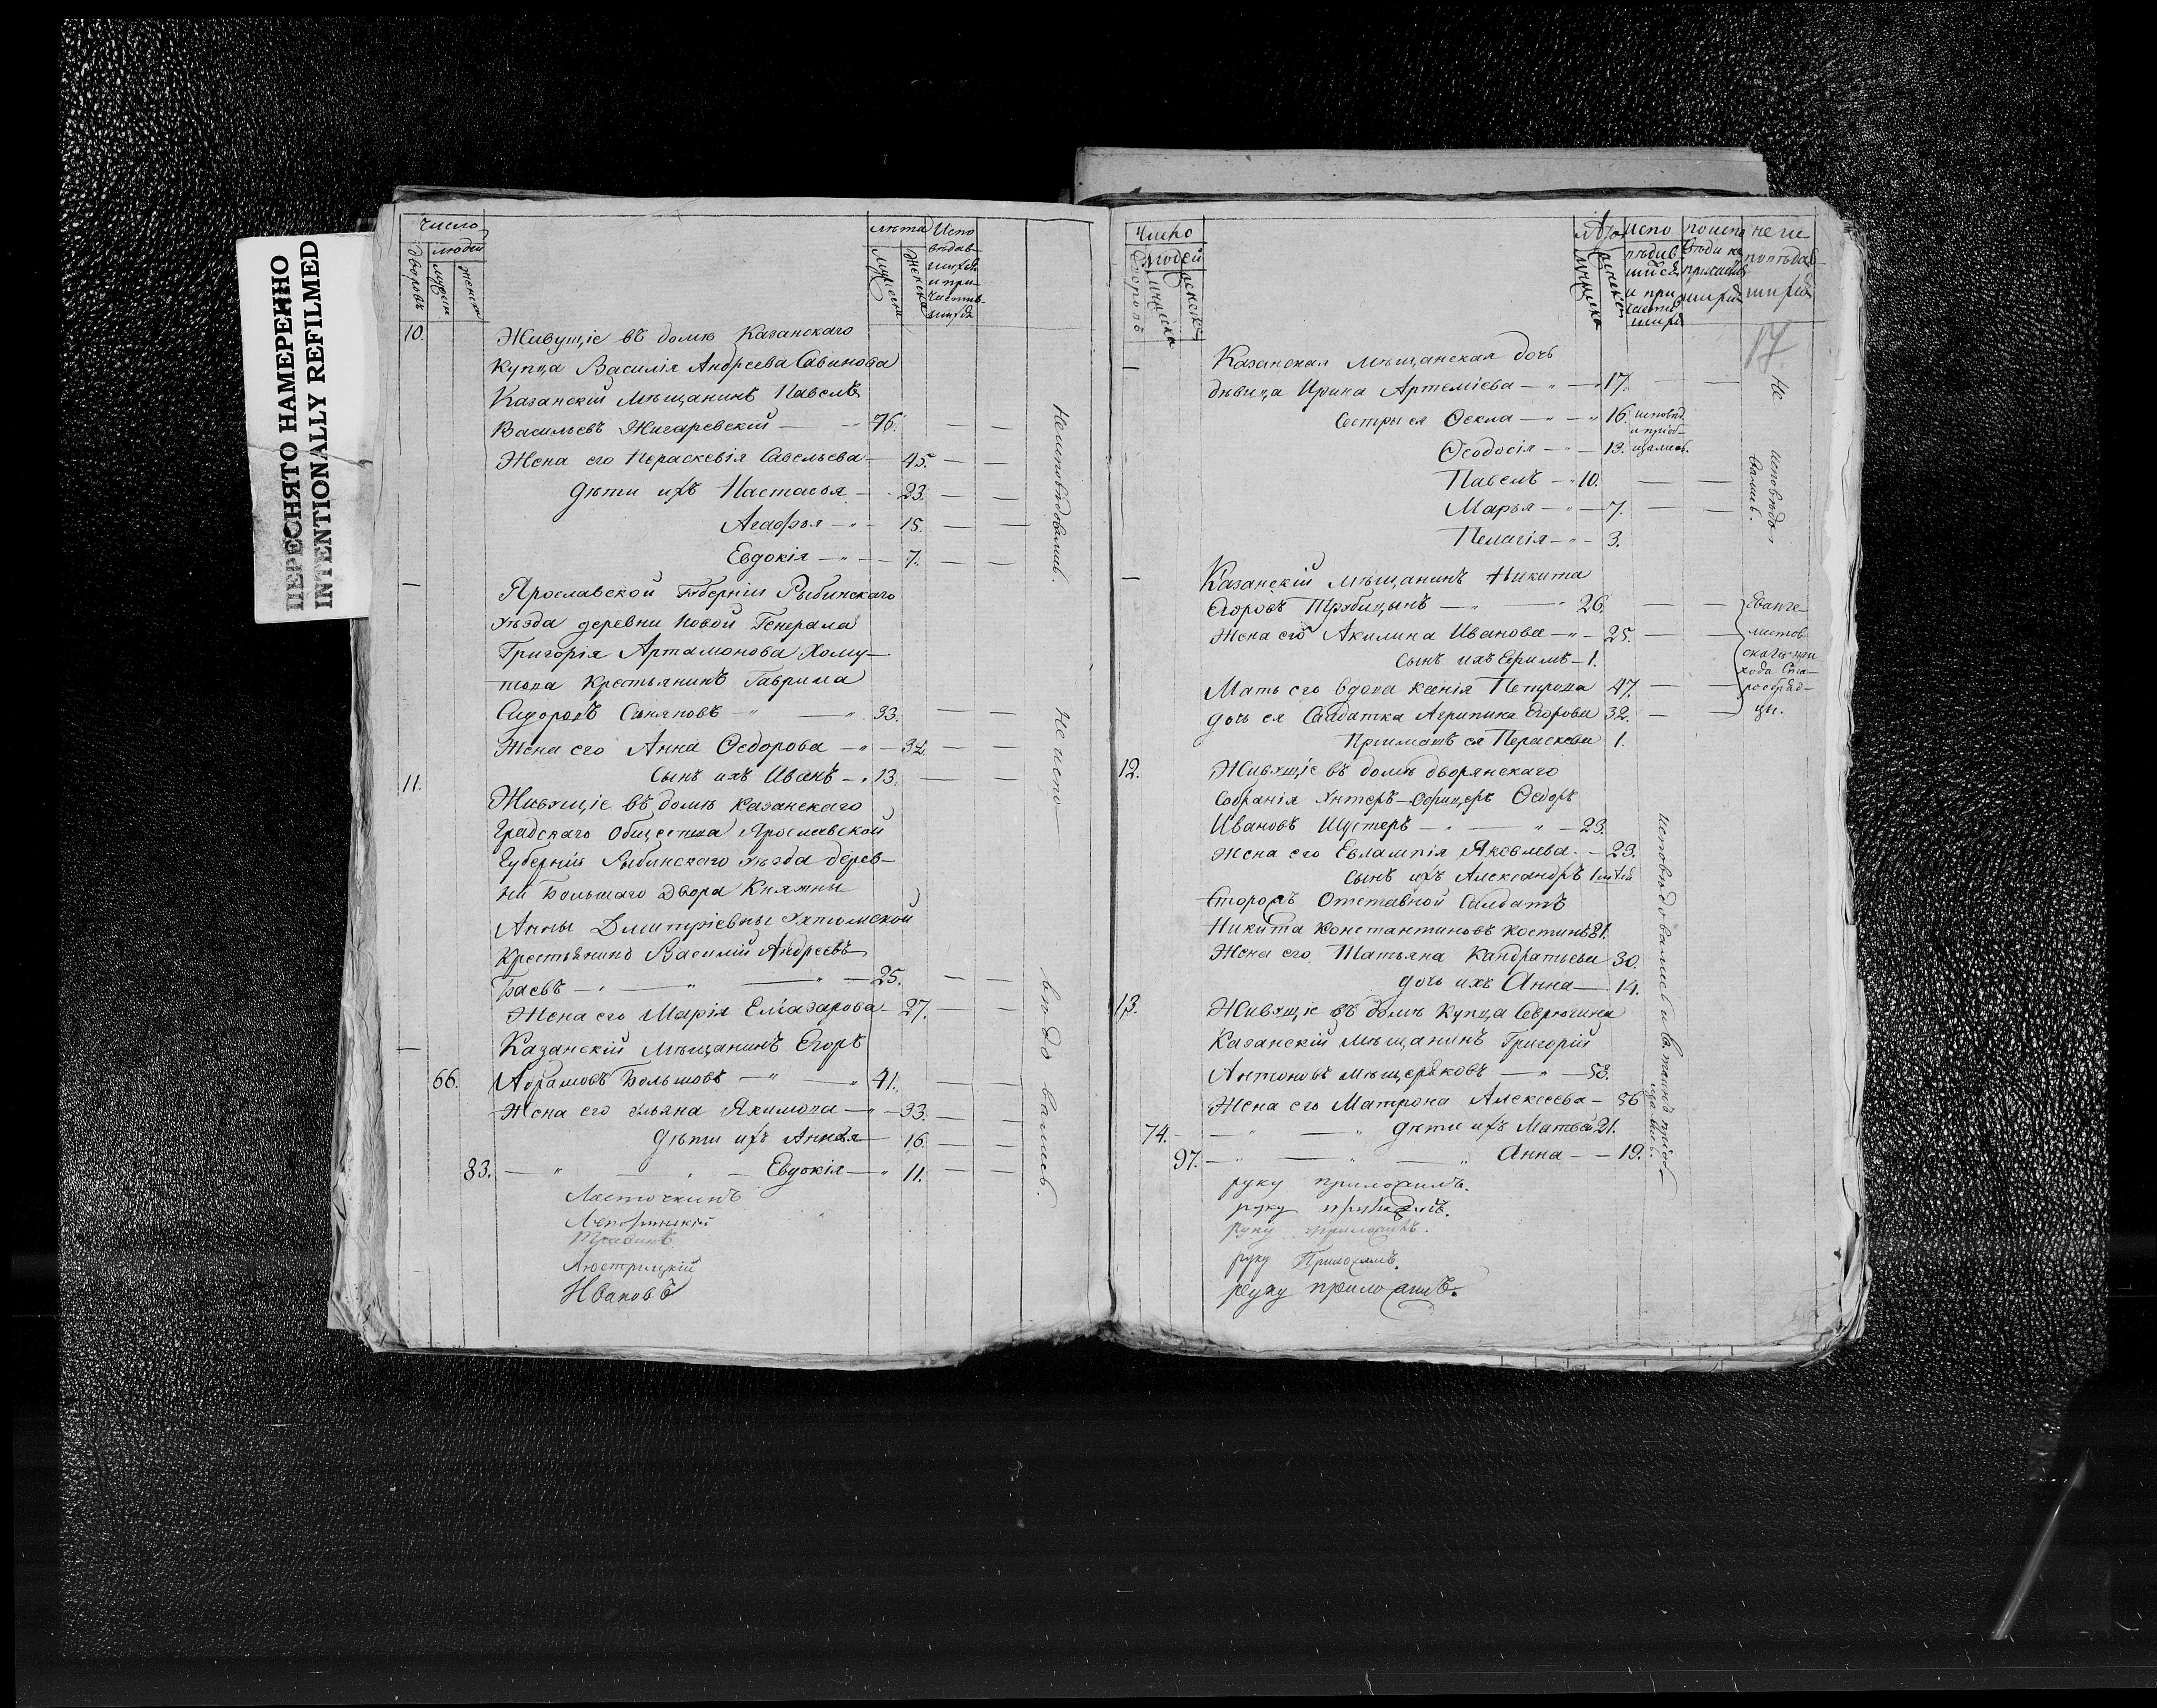 ПЕРЕСНЯТО НАМЕРЕННО
INTENTIONALLY REFILMED
Число
дворовъ
людей
мужеска
женска
лѣта
мужска
женска
Испо
вѣдав
шихся
и при
частив
шихся
10. Живущіе въ домѣ Казанскаго
купца Василія Андреева Савинова
Казанскій Мѣщанинъ Павелъ
Васильевъ Жигаревскій — 76. — —
Жена его Пераскевія Савельева — 45. — —
дѣти ихъ Настасья — 23. — —
Агафья — 15. — —
Евдокія — 7. — —
Неисповѣдовались.
— Ярославской Губерніи Рыбинскаго
уѣзда деревни Новой Генерала
Григорія Артамонова Хому—
това Крестьянинъ Гаврила
Сидоровъ — 33. — —
Жена его Анна Ѳедорова — 32. — —
сынъ ихъ Иванъ — 13. — —
11. Живущіе въ домѣ Казанскаго
Градскаго Общества Ярославской
Губерніи Рыбинскаго уѣзда дерев—
ни Большаго Двора Княжны
Анны Дмитріевны Ухтомской
Крестьянинъ Василій Андреевъ
Баевъ — 25. — —
Жена его Марія Елиазарова — 27. — —
— Казанскій мѣщанинъ Егоръ
66. Абрамовъ Большовъ — 41. — —
Жена его Ульяна Якимова — 33. — —
дѣти ихъ Анна — 16. — —
83. — Евдокія — 11. — —
Не испо— вѣдо вались.
Ласточкинъ
Люстрицкій
Ивановъ
Число
дворовъ
людей
мужеска
женска
Лѣта
мужеска
женска
испо
вѣдав
шихся
и при
частив
шихся
не ис
повѣдав
шихся
17
— Казанская мѣщанская дочь
дѣвица Ирина Артеміева — 17. —
Сестры ея Ѳекла — 16. исповѣд.
и пріоб—
Ѳеодосія — 13. щались.
Павелъ — 10. — —
Марья — 7. — —
Пелагія — 3.
Не исповѣдо
вались.
— Казанскій мѣщанинъ Никита
Егоровъ Трубицынъ — 26. — —
Жена его Акилина Иванова — 25. — —
сынъ ихъ Ефимъ — 1.
Мать его вдова Ксенія Петрова 47. — —
дочь ея Салдатка Агрипина Егорова 32. — —
Пріимышъ ея Пераскева 1.
Еванге—
листов
скаго при
хода Ста—
рообряд—
цы.
12. Живущіе въ домѣ дворянскаго
Собранія Унтеръ-Офицеръ Ѳедоръ
Ивановъ Шустеръ — 23.
Жена его Евлампія Яковлева — 23.
сынъ ихъ Александръ 1
Сторожъ Отставной Салдатъ
Никита Константиновъ Костинъ 31.
Жена его Татьяна Кандратьева 30.
дочь ихъ Анна — 14.
13. Живущіе въ домѣ Купца Севрюгина
Казанскій Мѣщанинъ Григорій
Антоновъ Мѣщеряковъ — 58.
Жена его Матрона Алексеева — 56
74. — дѣти ихъ Матвей 21.
97. — Анна — 19.
исповѣдовались и
руку приложилъ.
руку приложилъ.
руку приложилъ.
руку Приложилъ.
руку приложилъ.